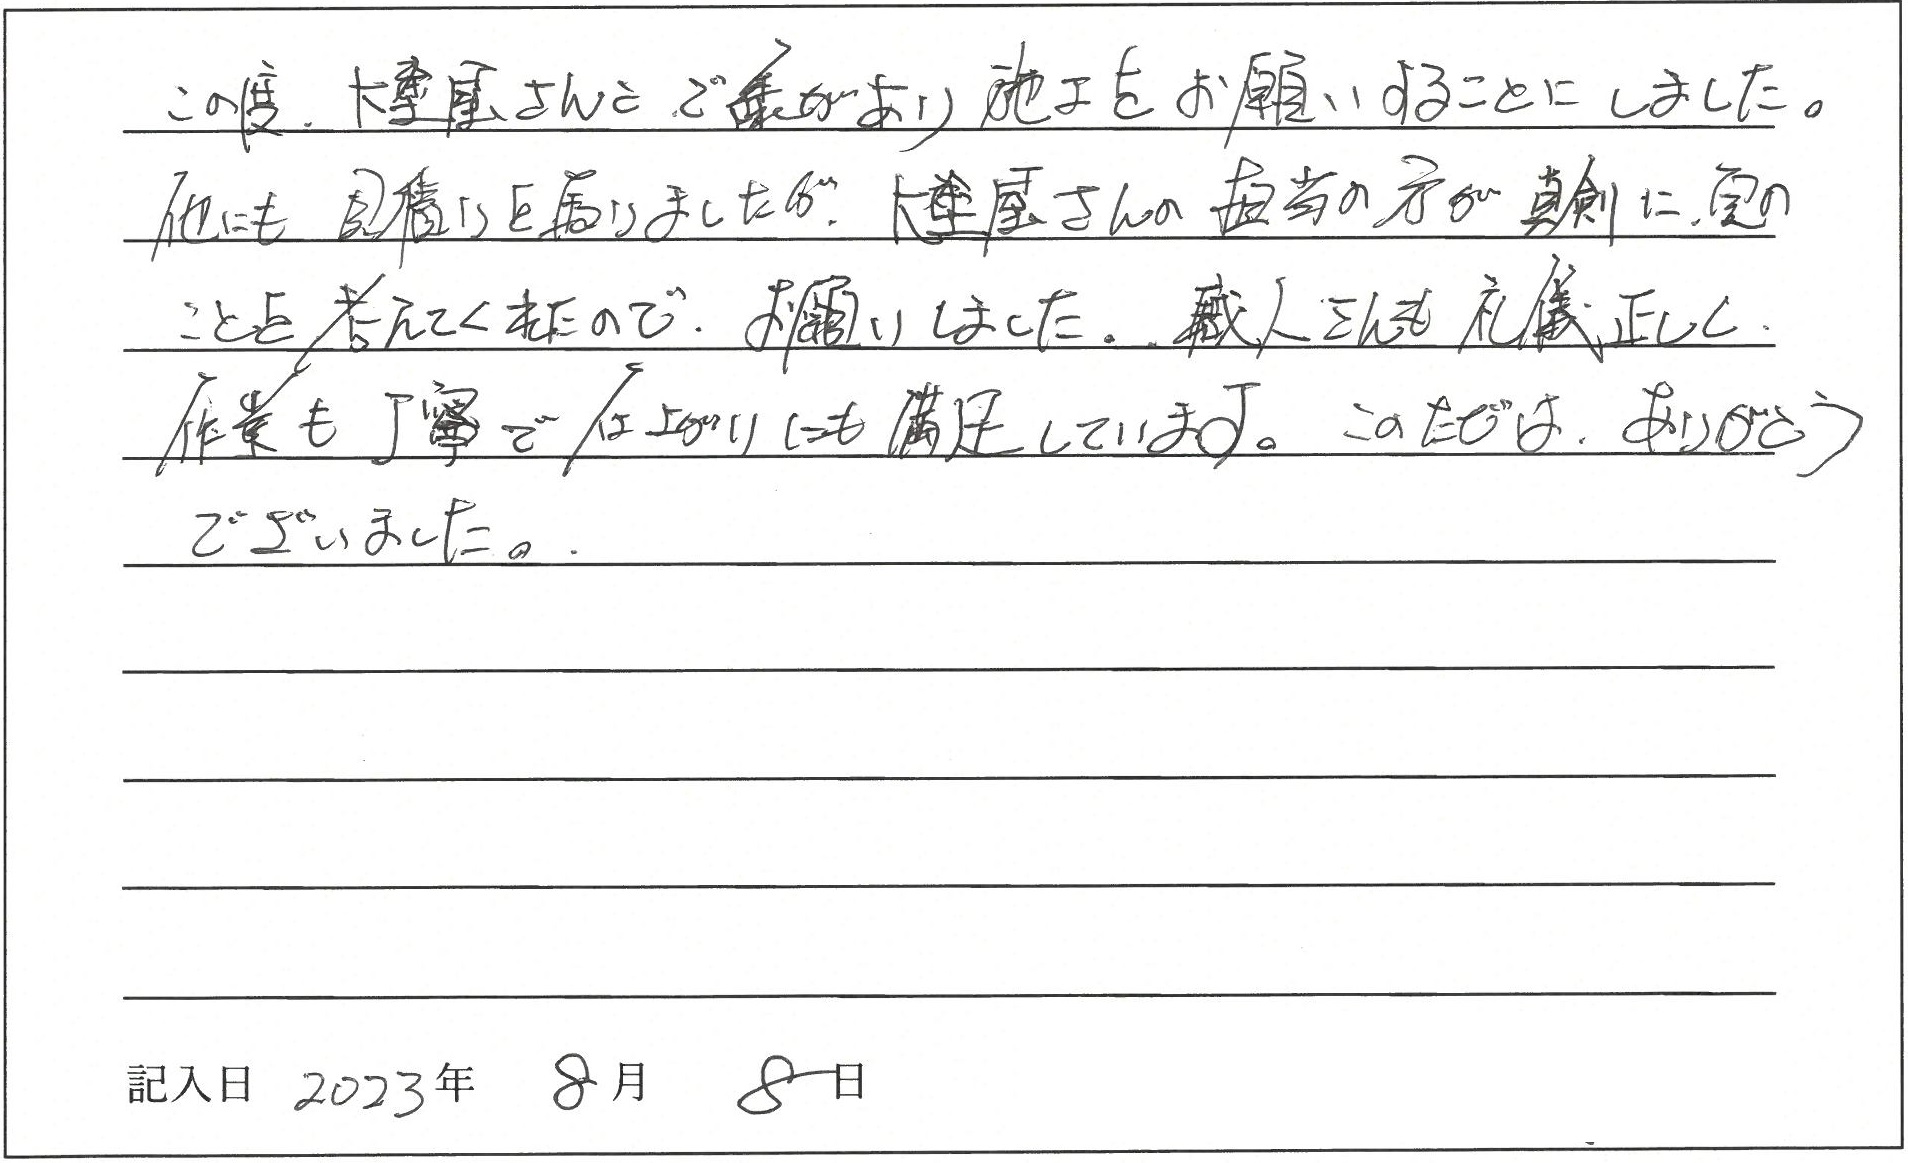 この度、大塗屋さんとご縁があり施工をお願いすることにしました。
他にも見積りを取りましたが、大塗屋さんの担当の方が真剣に家の
ことを考えてくれたので、お願いしました。職人さんも礼儀正しく、
作業も丁寧で仕上がりにも満足しています。このたびは、ありがとう
ございました。
記入日 2023年 8月 8日